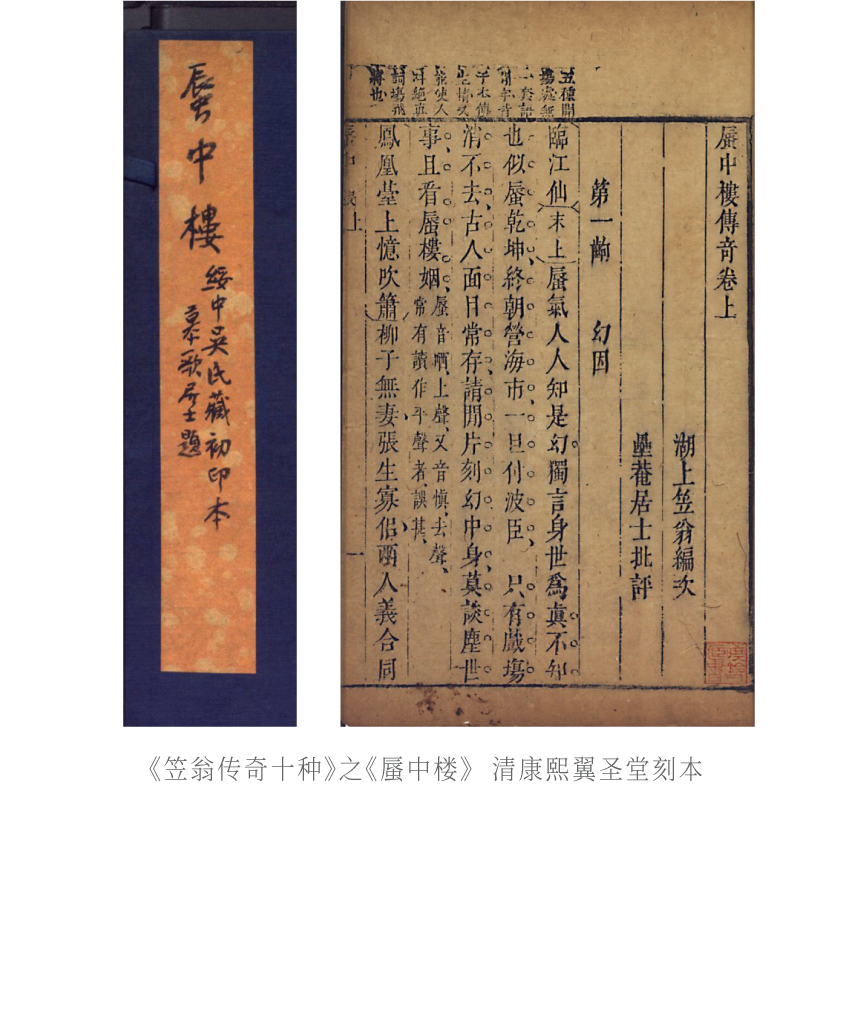 蜃中樓
綏中吳氏藏初印本
慕歌居士題
蜃中樓傳奇卷上
湖上笠翁編次
壘菴居士批評
第一齣 幻因
五種開
場處無
一套語
于本傳
生情又
能使人
詞場飛
將也
臨江仙(末上)蜃氣人人知是幻獨言身世爲真不知
也似蜃乾坤終朝營海市一旦付波臣 只有戲場
消不去古人面目常存請閒片刻幻中身莫談塵世
事且看蜃樓姻 蜃音哂、上聲、又音愼、去聲、
常有讀作平聲者、誤甚、
鳳凰臺上憶吹簫 柳子無妻、張生寡侶、兩人義合同
一
《笠翁传奇十种》之《蜃中楼》 清康熙翼圣堂刻本